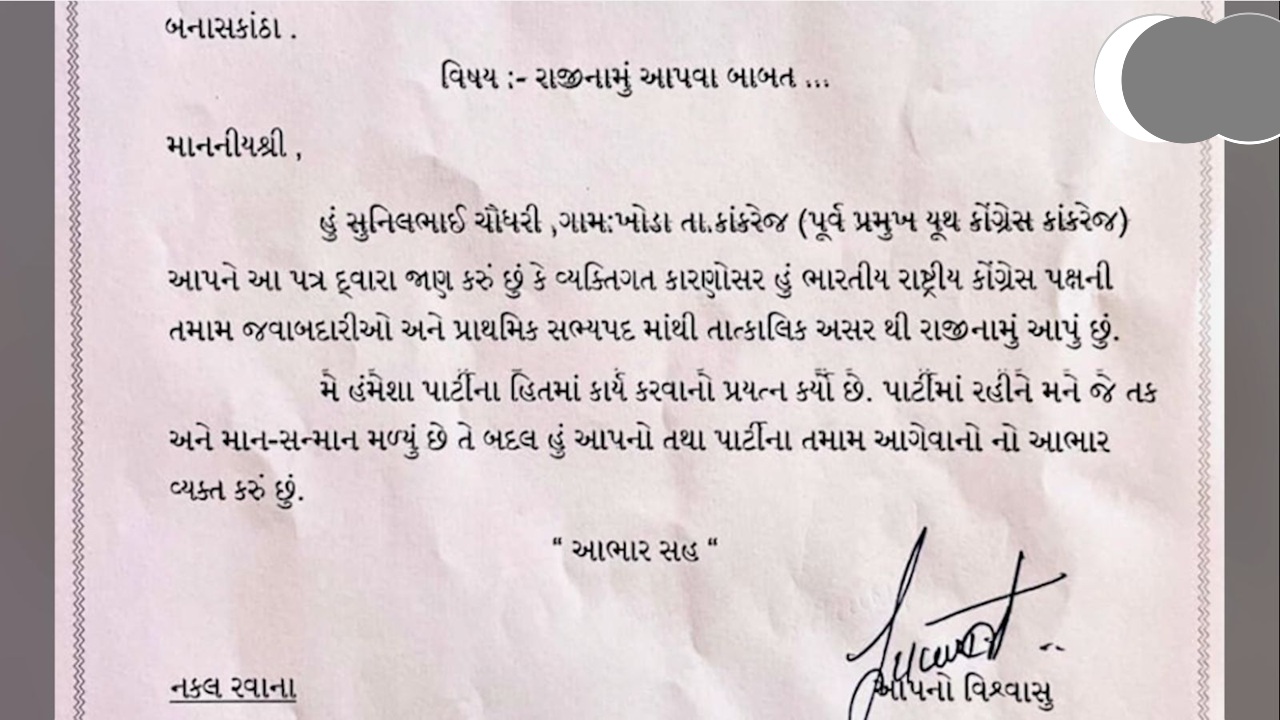 બનાસકાંઠા .
વિષય :- રાજીનામું આપવા બાબત ...
માનનીયશ્રી ,
હું સુનિલભાઈ ચૌધરી ,ગામ:ખોડા તા.કાંકરેજ (પૂર્વ પ્રમુખ યૂથ કોંગ્રેસ કાંકરેજ)
આપને આ પત્ર દ્વારા જાણ કરું છું કે વ્યક્તિગત કારણોસર હું ભારતીય રાષ્ટ્રીય કોંગ્રેસ પક્ષની
તમામ જવાબદારીઓ અને પ્રાથમિક સભ્યપદ માંથી તાત્કાલિક અસર થી રાજીનામું આપું છું.
મે હંમેશા પાર્ટીના હિતમાં કાર્ય કરવાનો પ્રયત્ન કર્યો છે. પાર્ટીમાં રહીને મને જે તક
અને માન-સન્માન મળ્યું છે તે બદલ હું આપનો તથા પાર્ટીના તમામ આગેવાનો નો આભાર
વ્યક્ત કરું છું.
“ આભાર સહ “
નકલ રવાના
આપનો વિશ્વાસુ